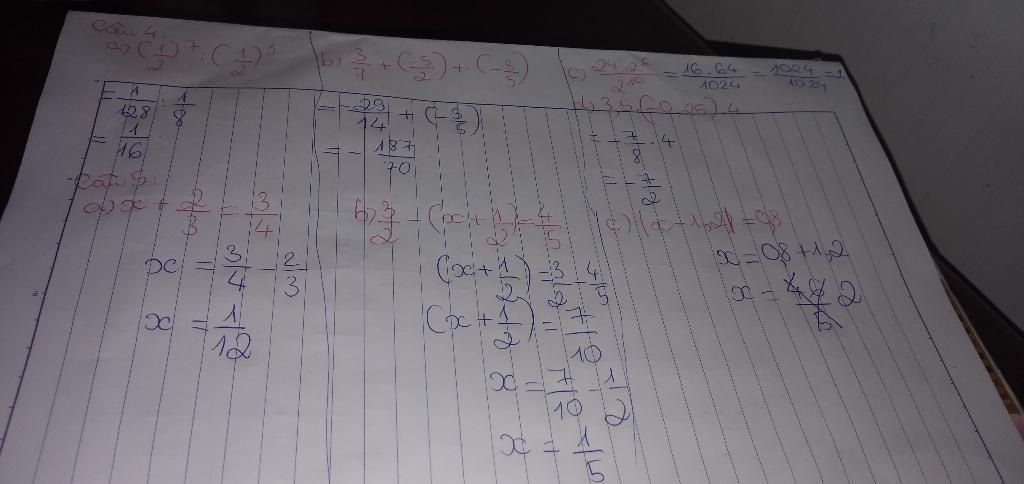 Câu 4:
a) (1/2)^7 : (1/2)^3
= 1/128 : 1/8
= 1/16
b) 3/7 + (-5/2) + (-3/5)
= -29/14 + (-3/5)
= - 187/70
c) 2^4.2^6/2^10 = 16.64/1024 = 1024/1024 = 1
d) 3,5.(-0,25).4
= -7/8 . 4
= -7/2
Câu 5:
a) x + 2/3 = 3/4
x = 3/4 - 2/3
x = 1/12
b) 3/2 - (x + 1/2) = 4/5
(x + 1/2) = 3/2 - 4/5
(x + 1/2) = 7/10
x = 7/10 - 1/2
x = 1/5
c) |x - 1,2| = 08
x = 08 + 1,2
x = 2